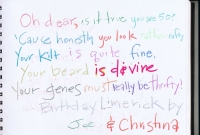 Oh dear, is it true you are 50?
'Cause honestly you look rather nifty
Your kilt is quite fine,
Your beard is divine
Your genes must really be thrifty!
Birthday Limerick by
Joe & Christina